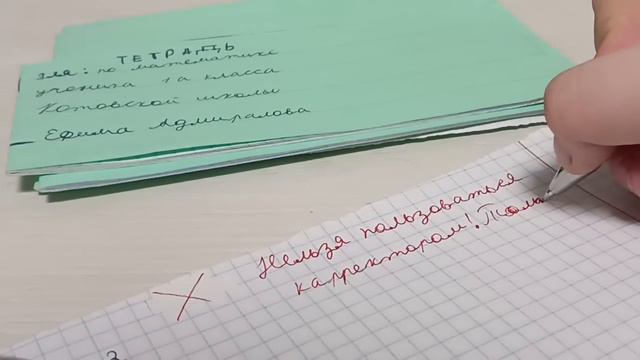 ТЕТРАДЬ
для: по математике
ученика 1а класса
Котовской школы
Ефима Адмиралова
Нельзя пользоваться
карректорам! Пома
3